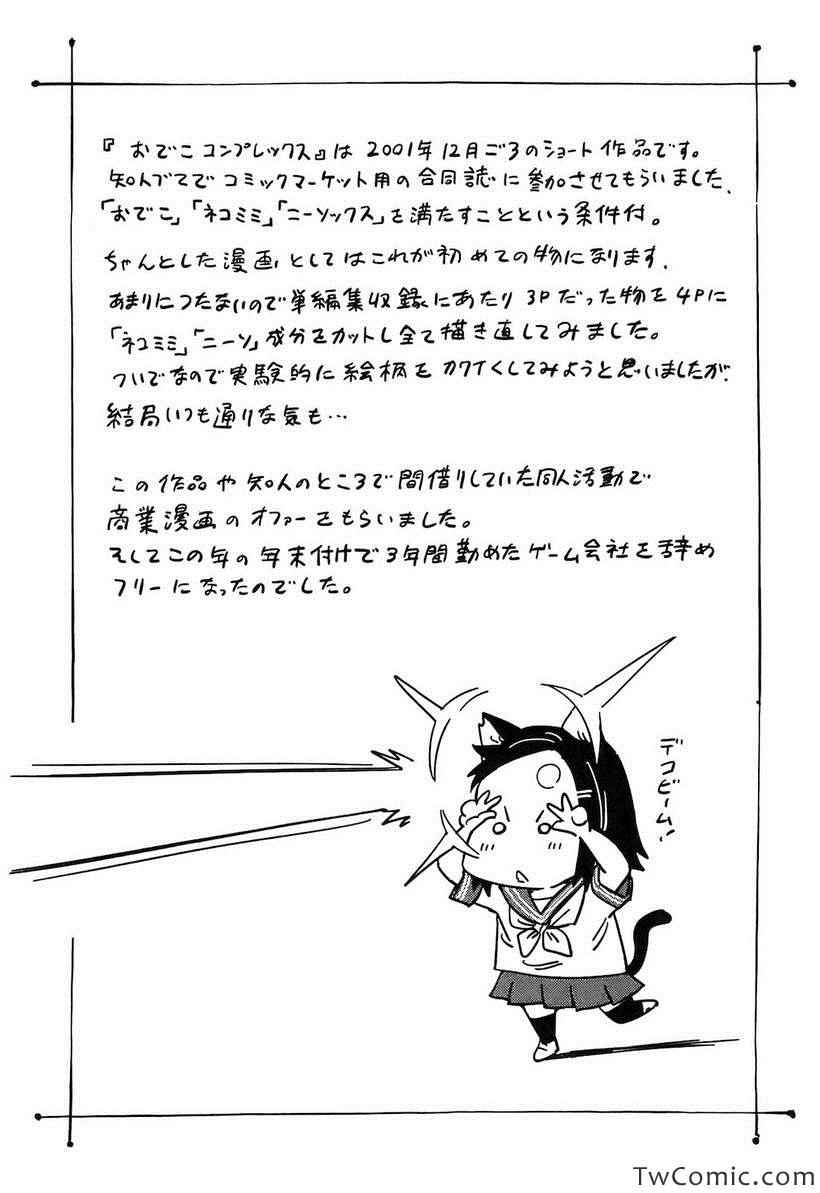 『おでこコンプレックス』は2001年12月ごろのショート作品です。
知人づてでコミックマーケット用の合同誌に参加させてもらいました、
「おでこ」「ネコミミ」「ニーソックス」を満たすことという条件付。
ちゃんとした漫画としてはこれが初めての物になります、
あまりにつたないので単編集収録にあたり3Pだった物を4Pに
「ネコミミ」「ニーソ」成分をカットし全て描き直してみました。
ついでなので実験的に絵柄をカワイくしてみようと思いましたが、
結局いつも通りな気も…
この作品や知人のところで間借りしていた同人活動で
商業漫画のオファーをもらいました。
そしてこの年の年末付けで3年間勤めたゲーム会社を辞め
フリーになったのでした。
デコビーム!
TwComic.com